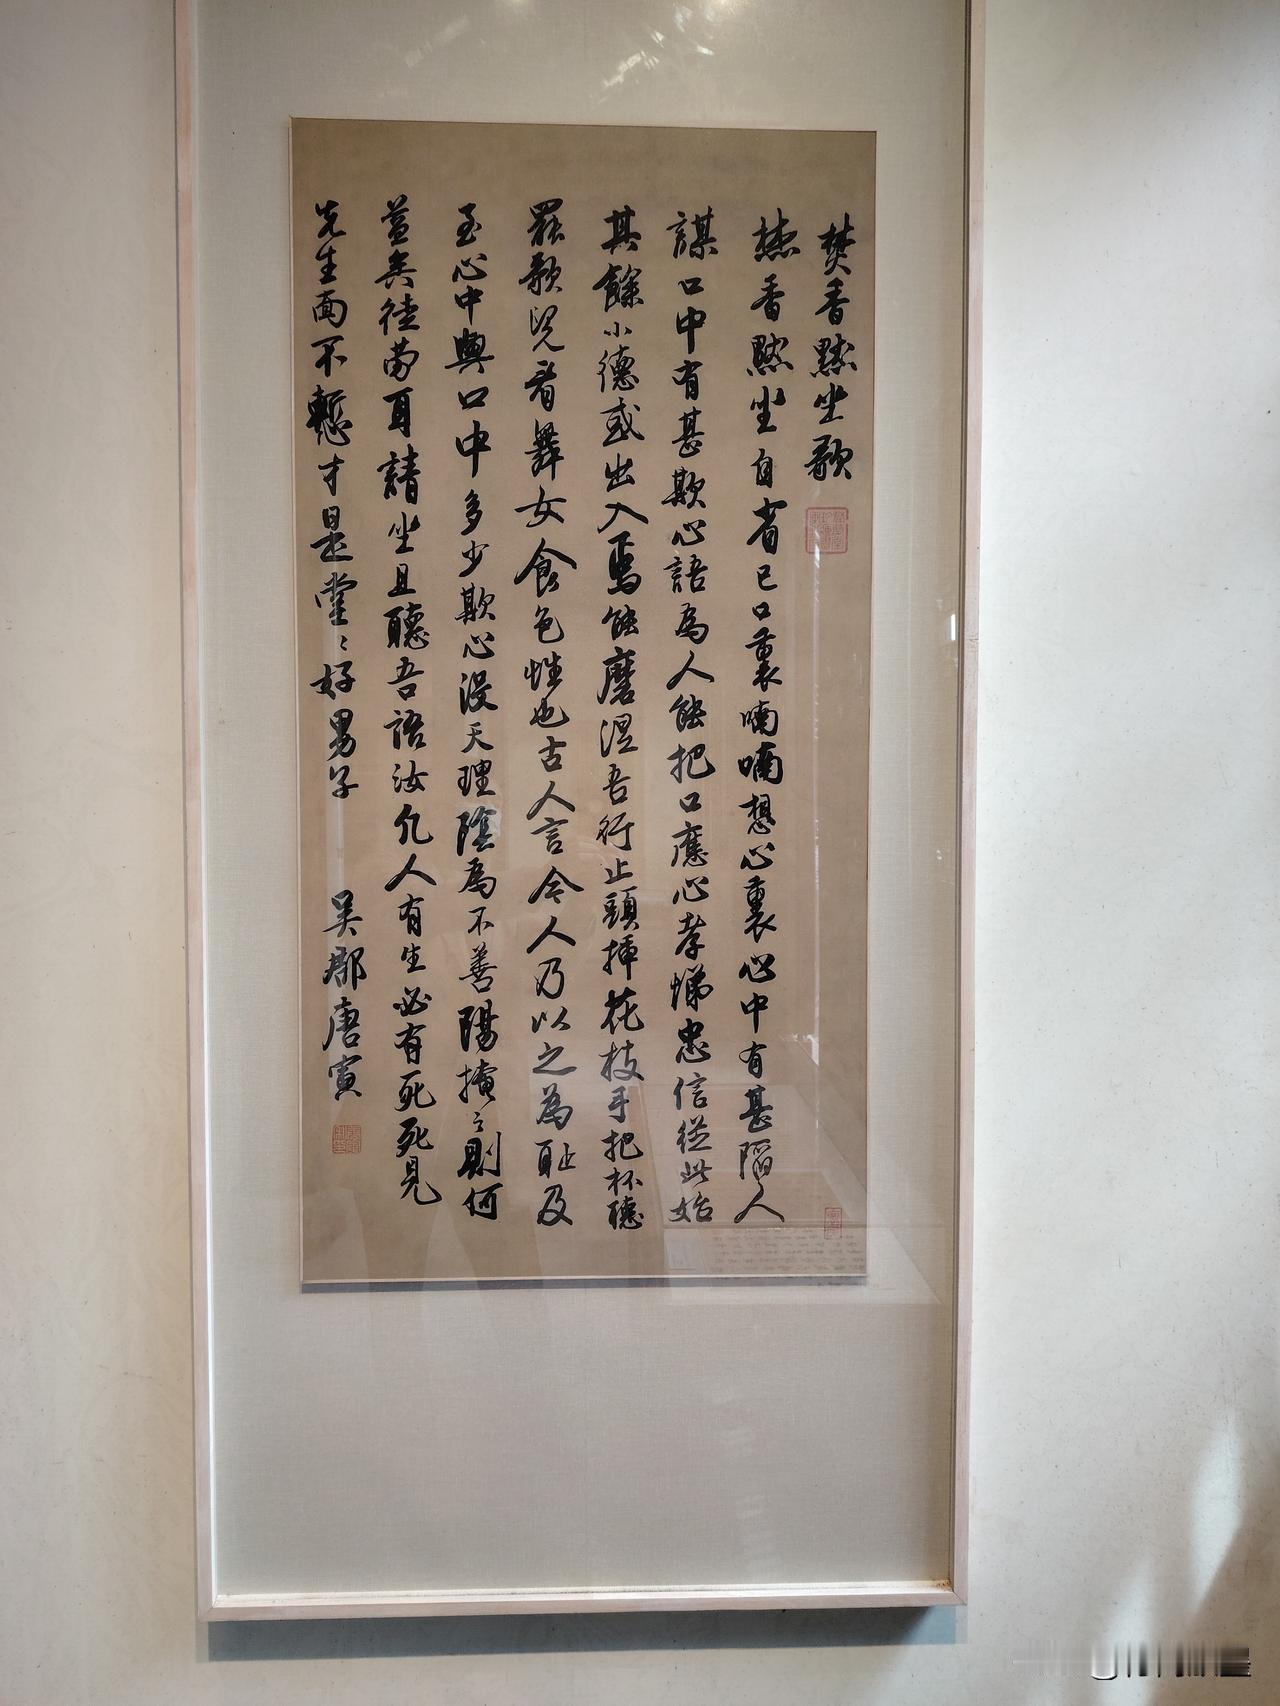 焚香默坐歌
焚香默坐自省己口裏喃喃想心裏心中有甚陷人
謀口中有甚欺心語為人能把口應心孝悌忠信從此始
其餘小德或出入焉能磨涅吾行止頭揷花枝手把杯聽
罷歌児看舞女食色性也古人言今人乃以之為恥及
至心中與口中多少欺心沒天理陰為不善陽掩之則何
益矣徒勞耳請坐且聽吾語汝凡人有生必有死死見
先生面不慙才是堂〻好男子 吳郡唐寅